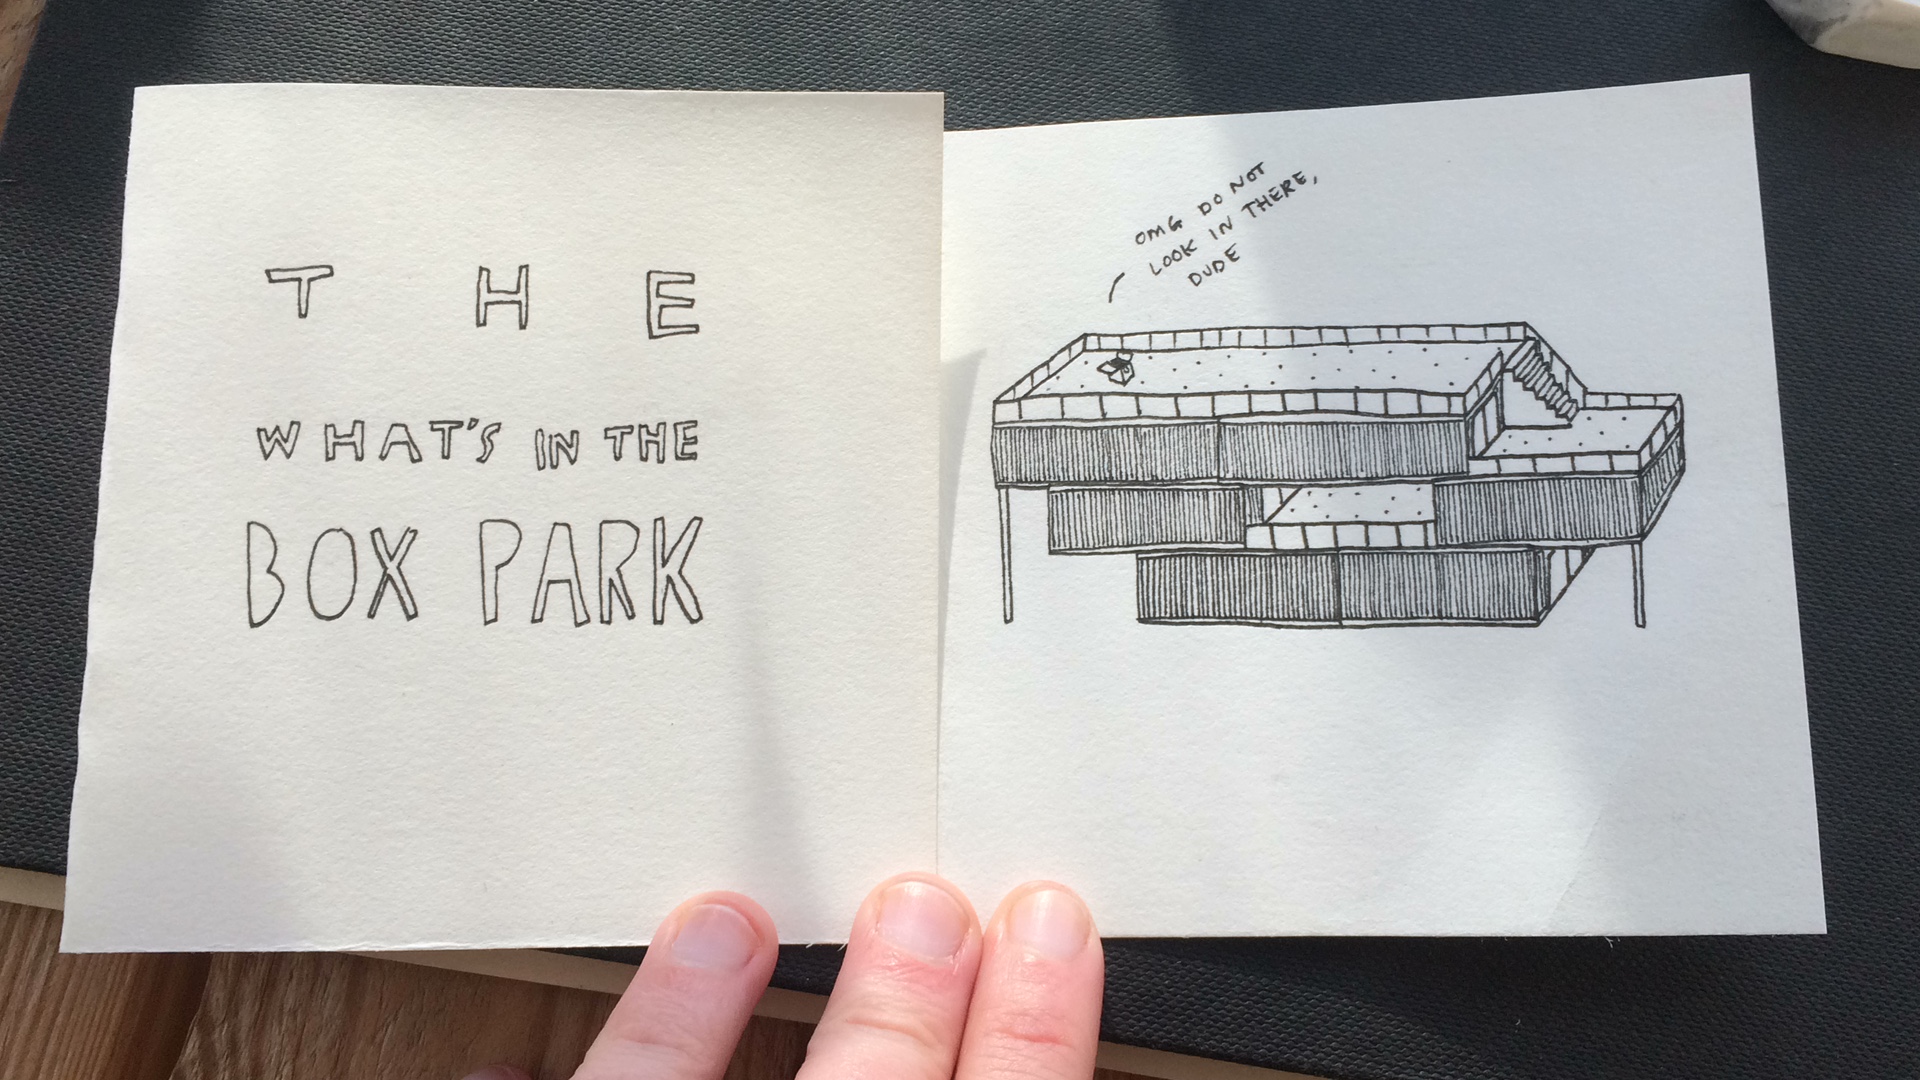 THE
WHAT'S IN THE
BOX PARK
OMG DO NOT
LOOK IN THERE,
DUDE